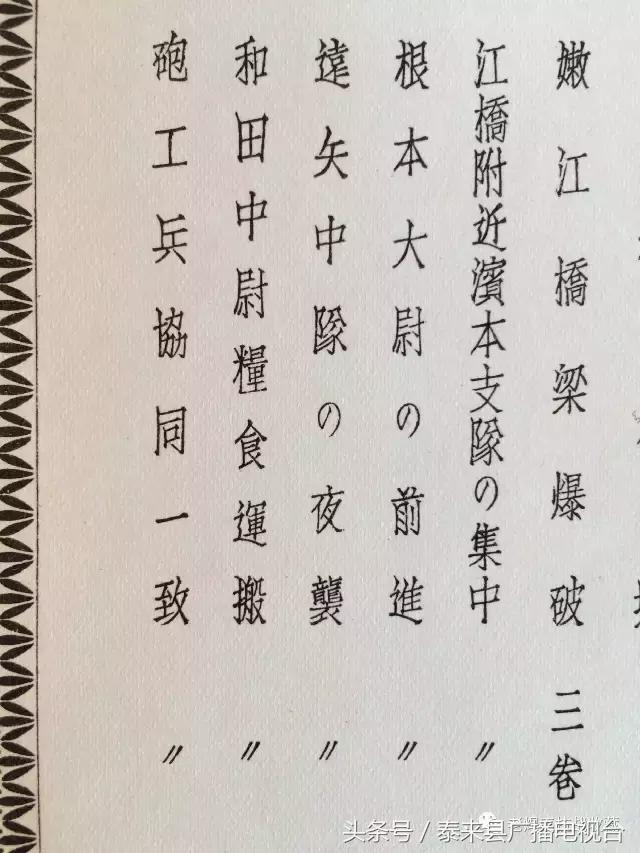 嫩江橋梁爆破 三巻
江橋附近濱本支隊の集中 〃
根本大尉の前進 〃
遠矢中隊の夜襲 〃
和田中尉糧食運搬 〃
砲工兵協同一致 〃
头条号 / 泰来县广播电视台